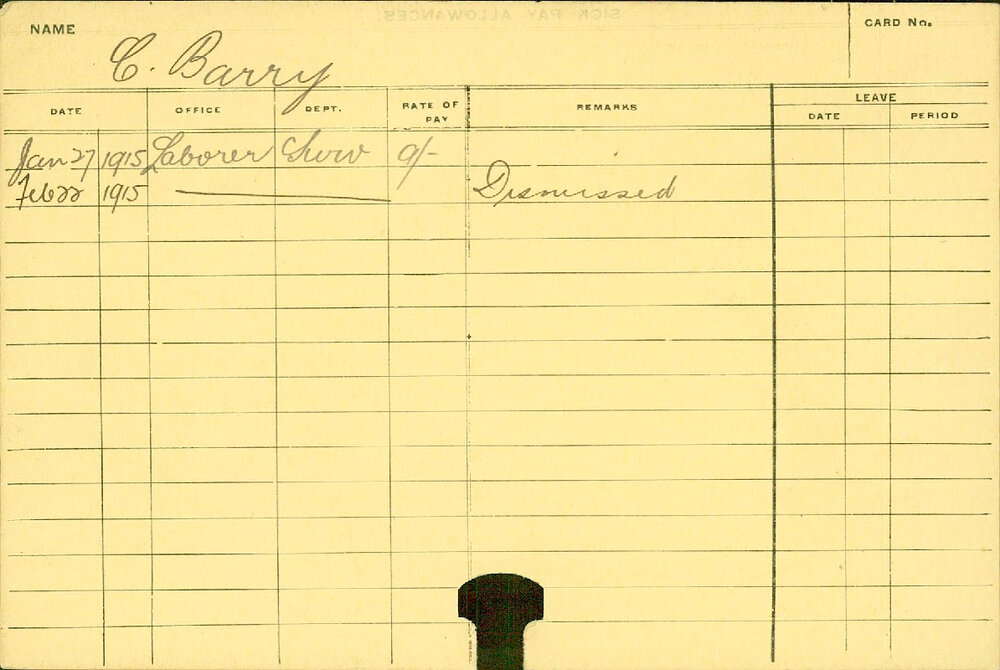 SICK PAY ALLOWANCES.
NAME C. Barry CARD No.
DATE OFFICE DEPT. RATE OF PAY REMARKS LEAVE
DATE PERIOD
Jan 27 1915 Laborer 9/-
Feb 22 1915 Dismissed